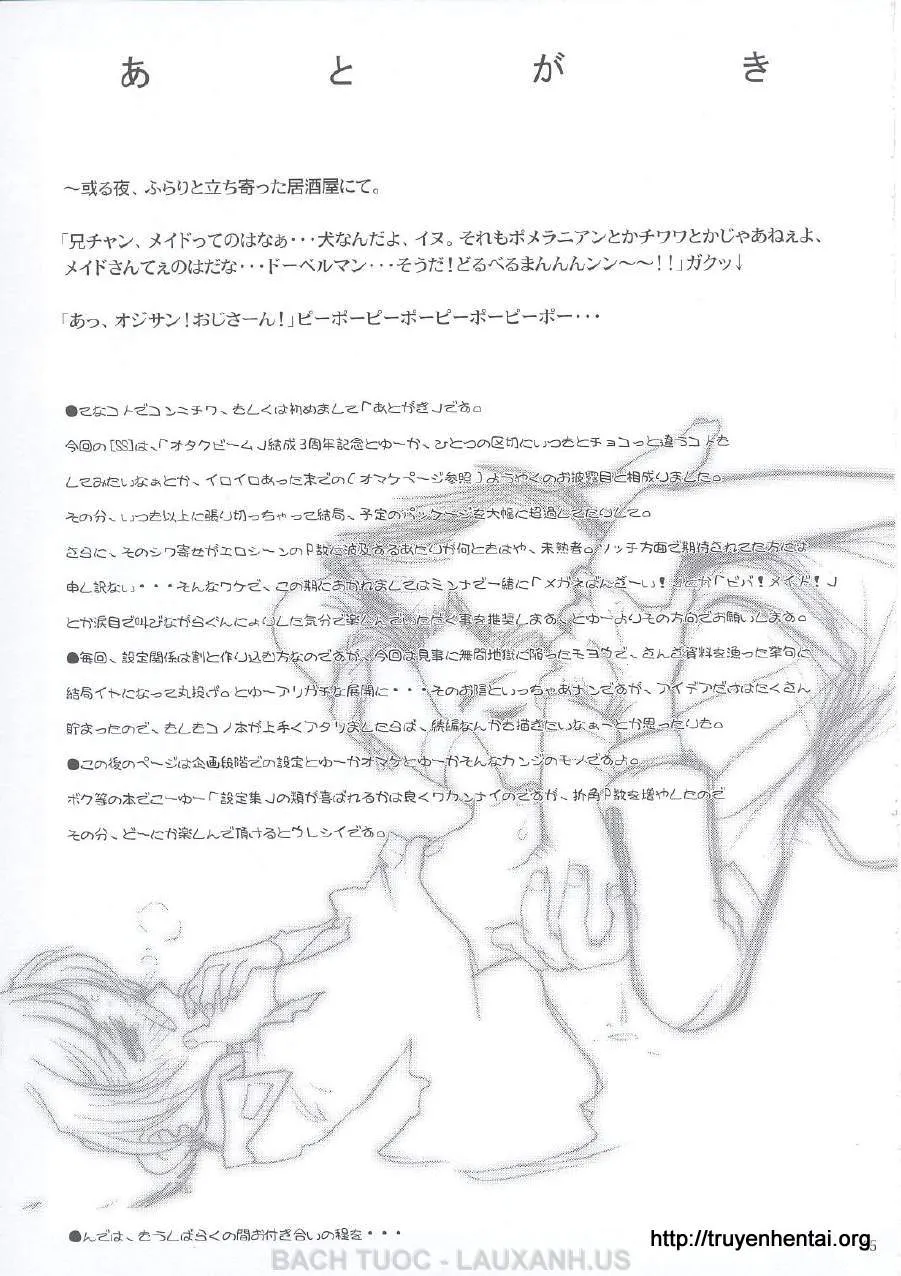 あとがき
～或る夜、ふらりと立ち寄った居酒屋にて。
「兄チャン、メイドってのはなぁ・・・犬なんだよ、イヌ。それもポメラニアンとかチワワとかじゃあねぇよ、
メイドさんてぇのはだな・・・ドーベルマン・・・そうだ！どるべるまんんんンン～～！！」ガクッ↓
「あっ、オジサン！おじさーん！」ピーポーピーポーピーポーピーポー・・・
●てなコトでコンニチワ、もしくは初めまして「あとがき」です。
今回の[SS]は、「オタクビーム」結成3周年記念とゆーか、ひとつの区切にいつもとチョコっと違うコトを
してみたいなぁとか、イロイロあった末での(オマケページ参照)ようやくのお披露目と相成りました。
その分、いつも以上に張り切っちゃって結局、予定のパッケージを大幅に超過してたりして。
さらに、そのシワ寄せがエロシーンのP数に波及するあたりが何ともはや、未熟者。ソッチ方面で期待されてた方には
申し訳ない・・・そんなワケで、この期におかれましてはミンナで一緒に「メガネばんざーい！」とか「ビバ！メイド！」
とか涙目で叫びながらぐんにょりした気分で楽しんでいただく事を推奨します、とゆーよりその方向でお願いします。
●毎回、設定関係は割と作り込む方なのですが、今回は見事に無間地獄に陥ったモヨウで、さんざ資料を漁った挙句に
結局イヤになって丸投げ。とゆーアリガチな展開に・・・そのお陰といっちゃあナンですが、アイデアだけはたくさん
貯まったので、もしもコノ本が上手くアタリましたらば、続編なんかも描きたいなぁーとか思ったりも。
●この後のページは企画段階での設定とゆーかオマケとゆーかそんなカンジのモノですよ。
ボク等の本でこーゆー「設定集」の類が喜ばれるかは良くワカンナイのですが、折角P数を増やしたので
その分、どーにか楽しんで頂けるとウレシイです。
●んでは、もうしばらくの間お付き合いの程を・・・
http://truyenhentai.org
5
BACH TUOC - LAUXANH.US